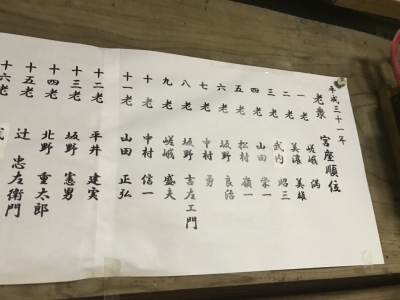 平成三十一年
老衆 宮座順位
一老 嵯峨 満
二老 美濱 美雄
三老 武内 昭三
四老 山田 栄一
五老 松村 嶺一
六老 坂野 良治
七老 中村 勇
八老 坂野 吉左エ門
九老 嵯峨 盛夫
十老 中村 信一
十一老 山田 正弘
十二老 平井 建実
十三老 坂野 憲男
十四老 北野 重太郎
十五老 辻 忠左衛門
十六老